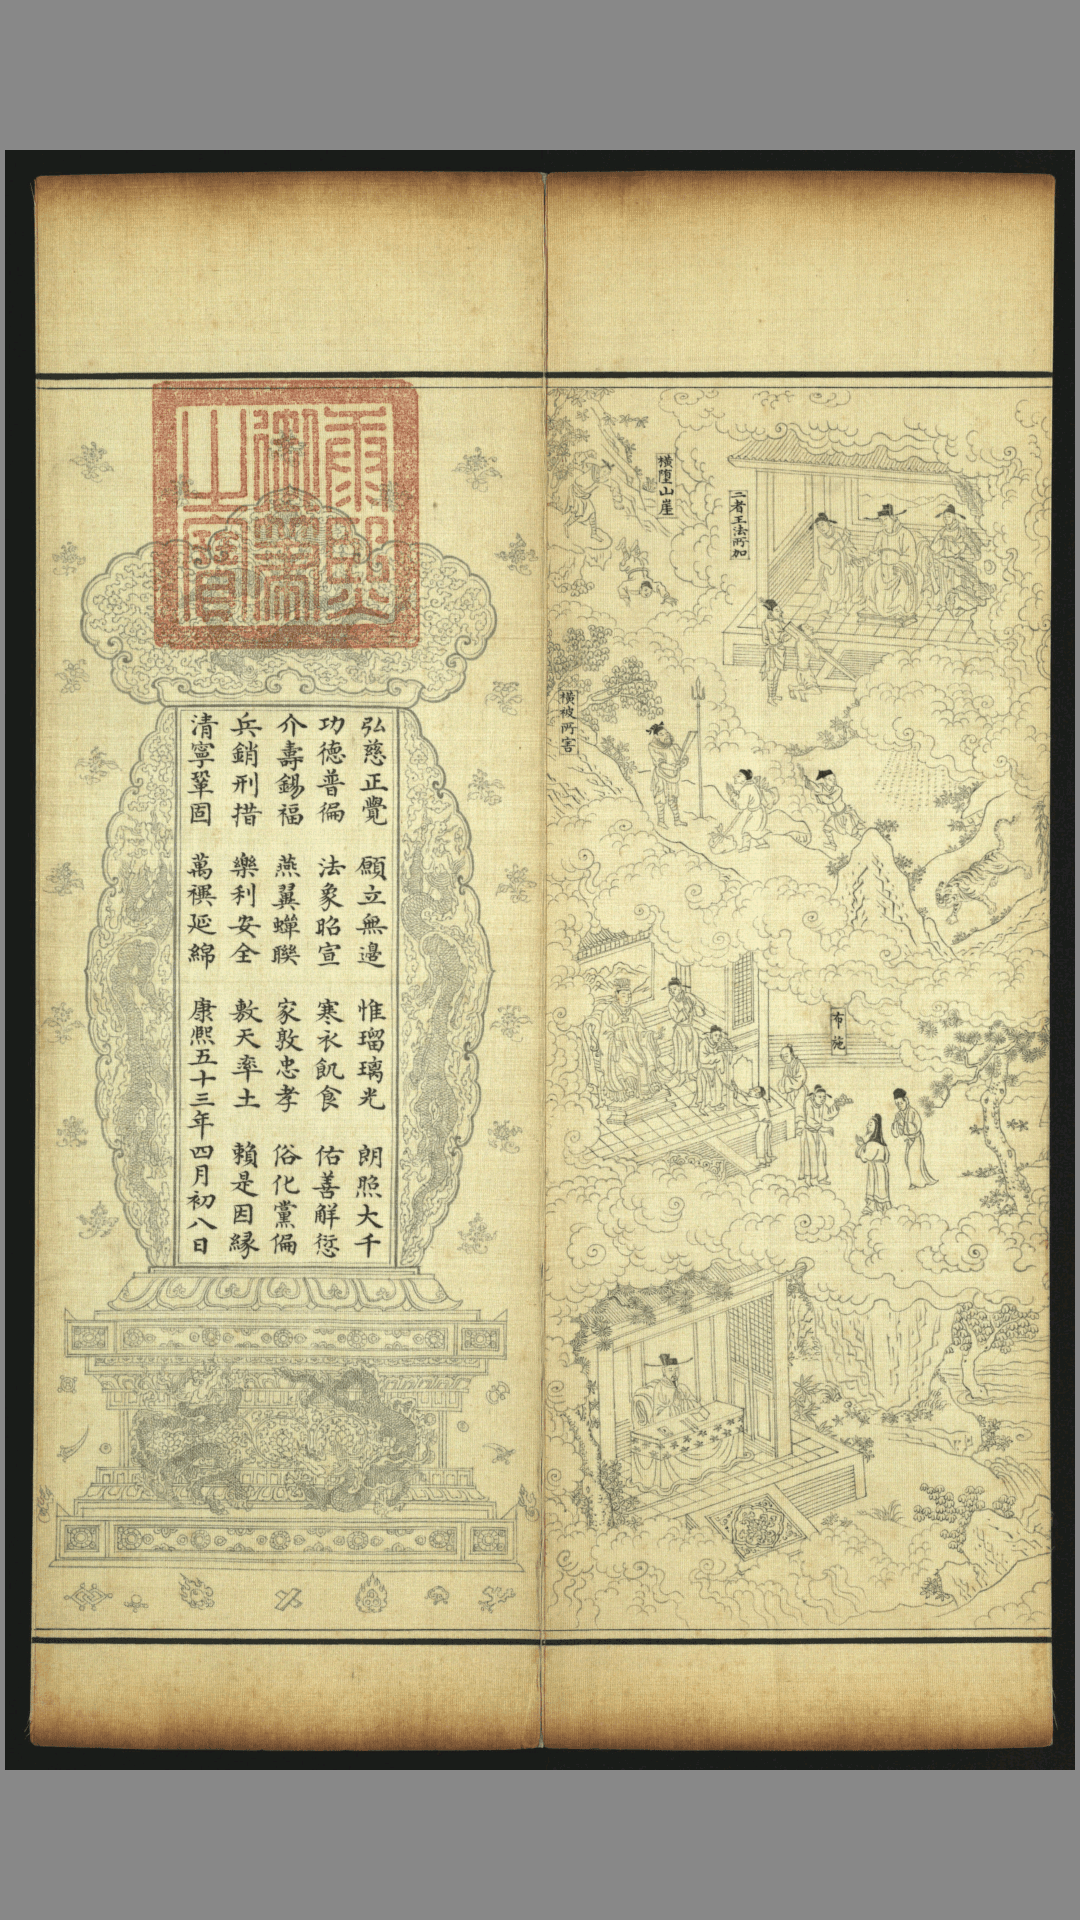 二者王法所加
橫墮山崖
橫被所害
布施
康熙御筆之寶
弘慈正覺 願立無邊 惟瑠璃光 朗照大千
功德普徧 法象昭宣 寒衣飢食 佑善解愆
介壽錫福 燕翼蟬聯 家敦忠孝 俗化黨偏
兵銷刑措 樂利安全 敷天率土 賴是因緣
清寧鞏固 萬禩延綿 康熙五十三年四月初八日